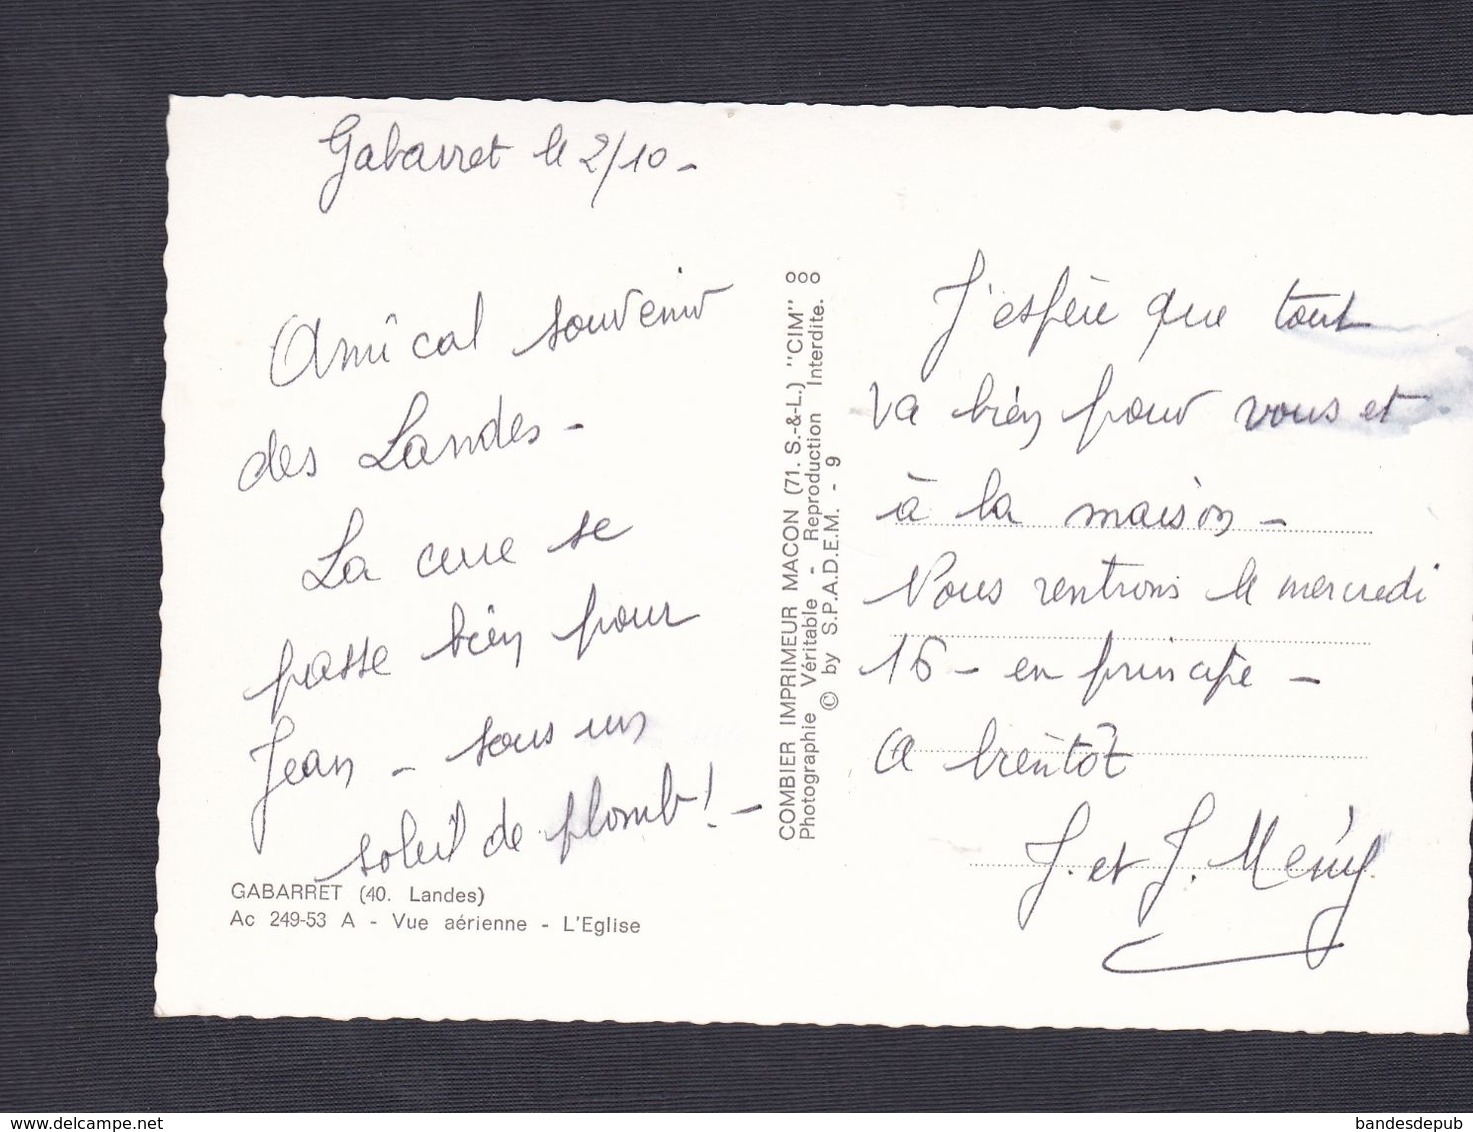 Gabarret le 2/10 -
Amical souvenir
des Landes -
La cure se
passe bien pour
Jean - sous un
soleil de plomb! -
GABARRET (40. Landes)
Ac 249-53 A - Vue aérienne - L'Eglise
COMBIER IMPRIMEUR MACON (71. S.-&-L.) "CIM"
Photographie Véritable - Reproduction Interdite.
© by S.P.A.D.E.M. - 9
J'espère que tout
va bien pour vous et
à la maison -
Nous rentrons le mercredi
16 - en principe -
A bientôt
J. et J.
delcampe.net
bandesdepub